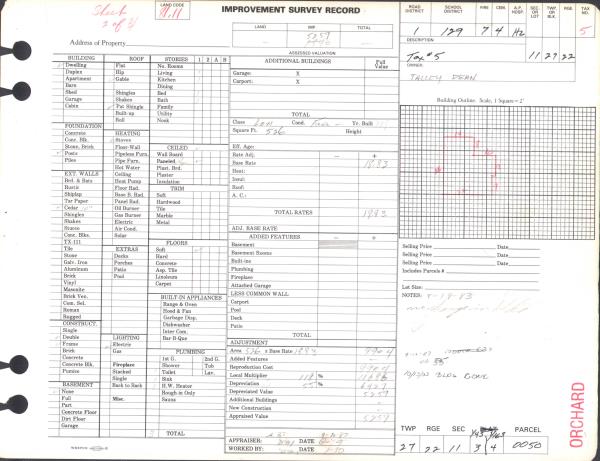 Sheet 2 of 3
LAND CODES
IMPROVEMENT SURVEY RECORD
Address of Property
LAND IMP TOTAL
5259
ASSESSED VALUATION
ROAD DISTRICT SCHOOL DISTRICT FIRE CEM. A.P. HOSP SEC. OR LOT TWP. OR BLK RGE TAX NO.
1 129 7 4 H2 5
DESCRIPTION
Tax #5 11 27 22
OWNER
TALLEY DEAN
Building Outline: Scale, 1 Square = 2'
STORIES 1 2 A B
Dwelling
Duplex
Apartment
Barn
Shed
Garage
Cabin
ROOF
Flat
Hip
Gable
Shingles
Shakes
Pat Shingle
Built-up
Roll
No. Rooms
Living
Kitchen
Dining
Bed
Bath
Family
Utility
Nook
FOUNDATION
Concrete
Conc. Blk.
Stone, Brick
Posts
Piles
HEATING
Stoves
Floor-Wall
Pipeless Furn.
Pipe Furn.
Hot Water
Ceiling
Heat Pump
Floor Rad.
Base B. Rad.
Panel Rad.
Oil Burner
Gas Burner
Electric
Air Cond.
Solar
CEILED
Wall Board
Paneled
Plast. Brd.
Plaster
Insulation
TRIM
Soft
Hardwood
Tile
Marble
Metal
EXT. WALLS
Brd. & Bats
Rustic
Shiplap
Tar Paper
Cedar
Shingles
Shakes
Stucco
Conc. Blks.
TX-111
Tile
Stone
Galv. Iron
Aluminum
Brick
Vinyl
Masonite
Brick Ven.
Com. Sel.
Roman
Rugged
EXTRAS
Decks
Porches
Patio
Pool
FLOORS
Soft
Hard
Concrete
Asp. Tile
Linoleum
Carpet
BUILT-IN APPLIANCES
Range & Oven
Hood & Fan
Garbage Disp.
Dishwasher
Inter Com.
Bar-B-Que
CONSTRUCT.
Single
Double
Frame
Brick
Concrete
Concrete Blk.
Pumice
LIGHTING
Electric
Gas
Fireplace
Stacked
Single
Back to Back
Misc.
PLUMBING
1st G. 2nd G.
Shower Tub
Toilet Lav.
Sink
H.W. Heater
Rough in Only
Saunas
BASEMENT
None
Full
Part
Concrete Floor
Dirt Floor
Garage
TOTAL
ADDITIONAL BUILDINGS Full Value
Garage: X
Carport: X
TOTAL
Class Cond. Yr. Built
Square Ft. 526 Height
Eff. Age:
Rate Adj. – +
Base Rate 1883
Heat:
Insul:
Roof:
A. C.:
TOTAL RATES 1883
ADJ. BASE RATE
ADDED FEATURES – +
Basement
Basement Rooms
Built-ins
Plumbing
Fireplace
Attached Garage
LESS COMMON WALL
Carport
Pool
Deck
Patio
TOTAL
ADJUSTMENT
Area 526 x Base Rate 1883 9904
Added Features
Reproduction Cost 9904
Local Multiplier 118% 11686
Depreciation 55% 6427
Additional Buildings 5259
New Construction
Appraised Value 5259
APPRAISER: DATE
WORKED BY: DATE
Selling Price Date
Selling Price Date
Selling Price Date
Includes Parcels #
Lot Size:
NOTES:
10/13/83 BLDG DONE
TWP RGE SEC PARCEL
27 22 11 3/4 0050
ORCHARD